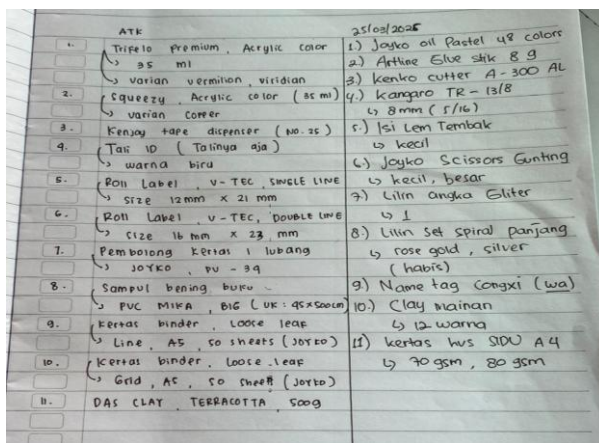 ATK
1. Trifelo premium, Acrylic color
↳ 35 ml
↳ varian vermilion, viridian
2. Squeezy, Acrylic color (35 ml)
↳ varian copper
3. Kenjoy tape dispenser (NO. 25)
4. Tali ID (Talinya aja)
↳ warna biru
5. Roll Label, V-TEC, SINGLE LINE
↳ size 12mm x 21 mm
6. Roll Label, V-TEC, DOUBLE LINE
↳ size 16 mm x 23 mm
7. Pembolong kertas 1 lubang
↳ JOYKO, PU - 39
8. Sampul bening buku
↳ PVC MIKA, BIG (UK: 45x500cm)
9. Kertas binder, Loose leaf
↳ Line, A5, 50 sheets (JOYKO)
10. Kertas binder, Loose leaf
↳ Grid, A5, 50 sheet (JOYKO)
11. DAS CLAY, TERRACOTTA, 500g
25/03/2025
1.) Joyko oil Pastel 48 colors
2) Artline Glue stik 8 g
3) Kenko cutter A-300 AL
4.) Kangaro TR - 13/8
↳ 8mm (5/16)
5.) Isi Lem Tembak
↳ kecil
6.) Joyko Scissors Gunting
↳ kecil, besar
7.) Lilin angka Gliter
↳ 1
8.) Lilin Set Spiral panjang
↳ rose gold, silver
(habis)
9.) Name tag Congxi (wa)
10.) Clay mainan
↳ 12 warna
11) kertas hvs SIDU A4
↳ 70 gsm, 80 gsm